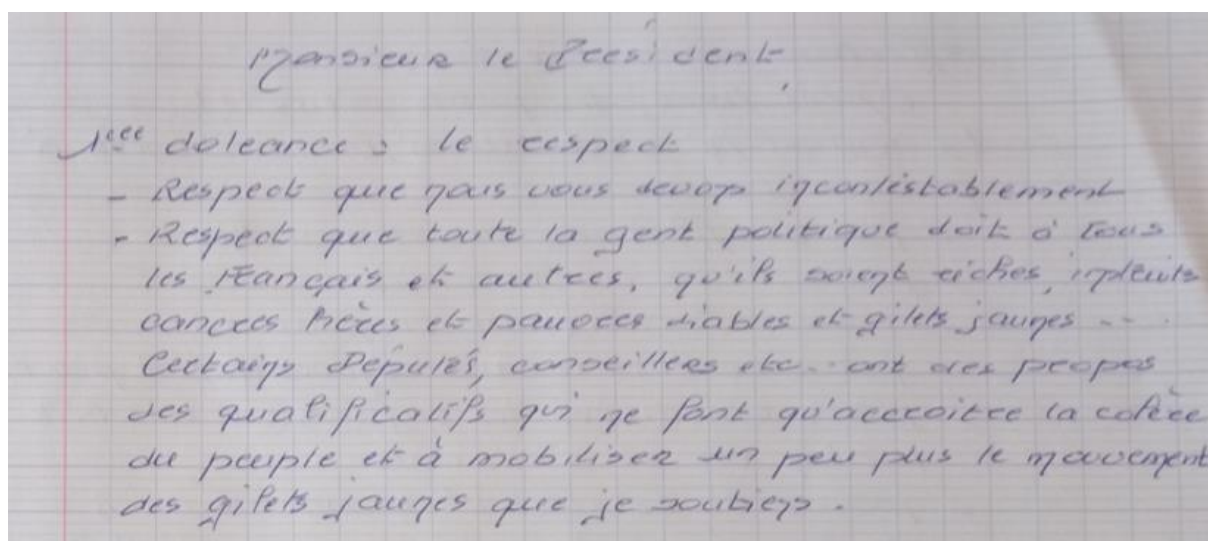 Monsieur le Président,
1ère doleance : le respect
- Respect que nous vous devons incontestablement
- Respect que toute la gent politique doit à tous
les Français et autres, qu'ils soient riches,
pauvres diables et gilets jaunes ...
Certains Députés, conseillers etc... ont des propos
des qualificatifs qui ne font qu'accroitre la colère
du peuple et à mobiliser un peu plus le mouvement
des gilets jaunes que je soutiens.